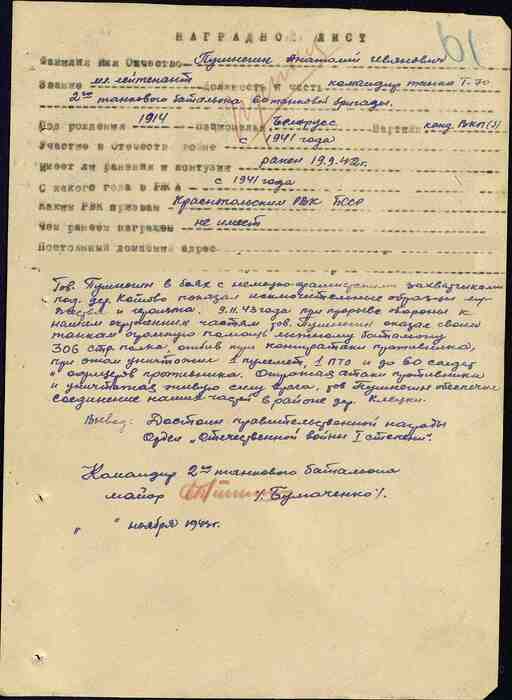 61
НАГРАДНОЙ ЛИСТ
Фамилия Имя Отчество Анатолий Иванович
Звание мл. лейтенант Должность и часть командир танка Т-70
2го танкового батальона танковой бригады.
Год рождения 1914 национальн. Белорусс Партийн. канд. ВКП(б)
Участие в отечеств. войне с 1941 года
Имеет ли ранения и контузии ранен 19.9.42г.
С какого года в РККА с 1941 года
Каким РВК призван Краснопольским РВК БССР
Чем ранее награжден не имеет
Постоянный домашний адрес
Тов. в боях с немецко-фашистскими захватчиками
под дер. показал исключительные образцы му-
жества и героизма. 9.11.43 года при прорыве обороны к
нашим окруженным частям тов. оказал своим
танком огневую помощь батальону
306 стр. полка, отбив при контратаки противника,
при этом уничтожил 1 пулемет, 1 ПТО и до 60 солдат
и офицеров противника. Отражая атаки противника
и уничтожая живую силу врага, тов. обеспечил
соединение наших частей в районе дер. Клецки.
Вывод: Достоин правительственной награды
Орден „Отечественной войны I степени".
Командир 2го танкового батальона
майор /Бумаченко/.
„ " ноября 1943г.